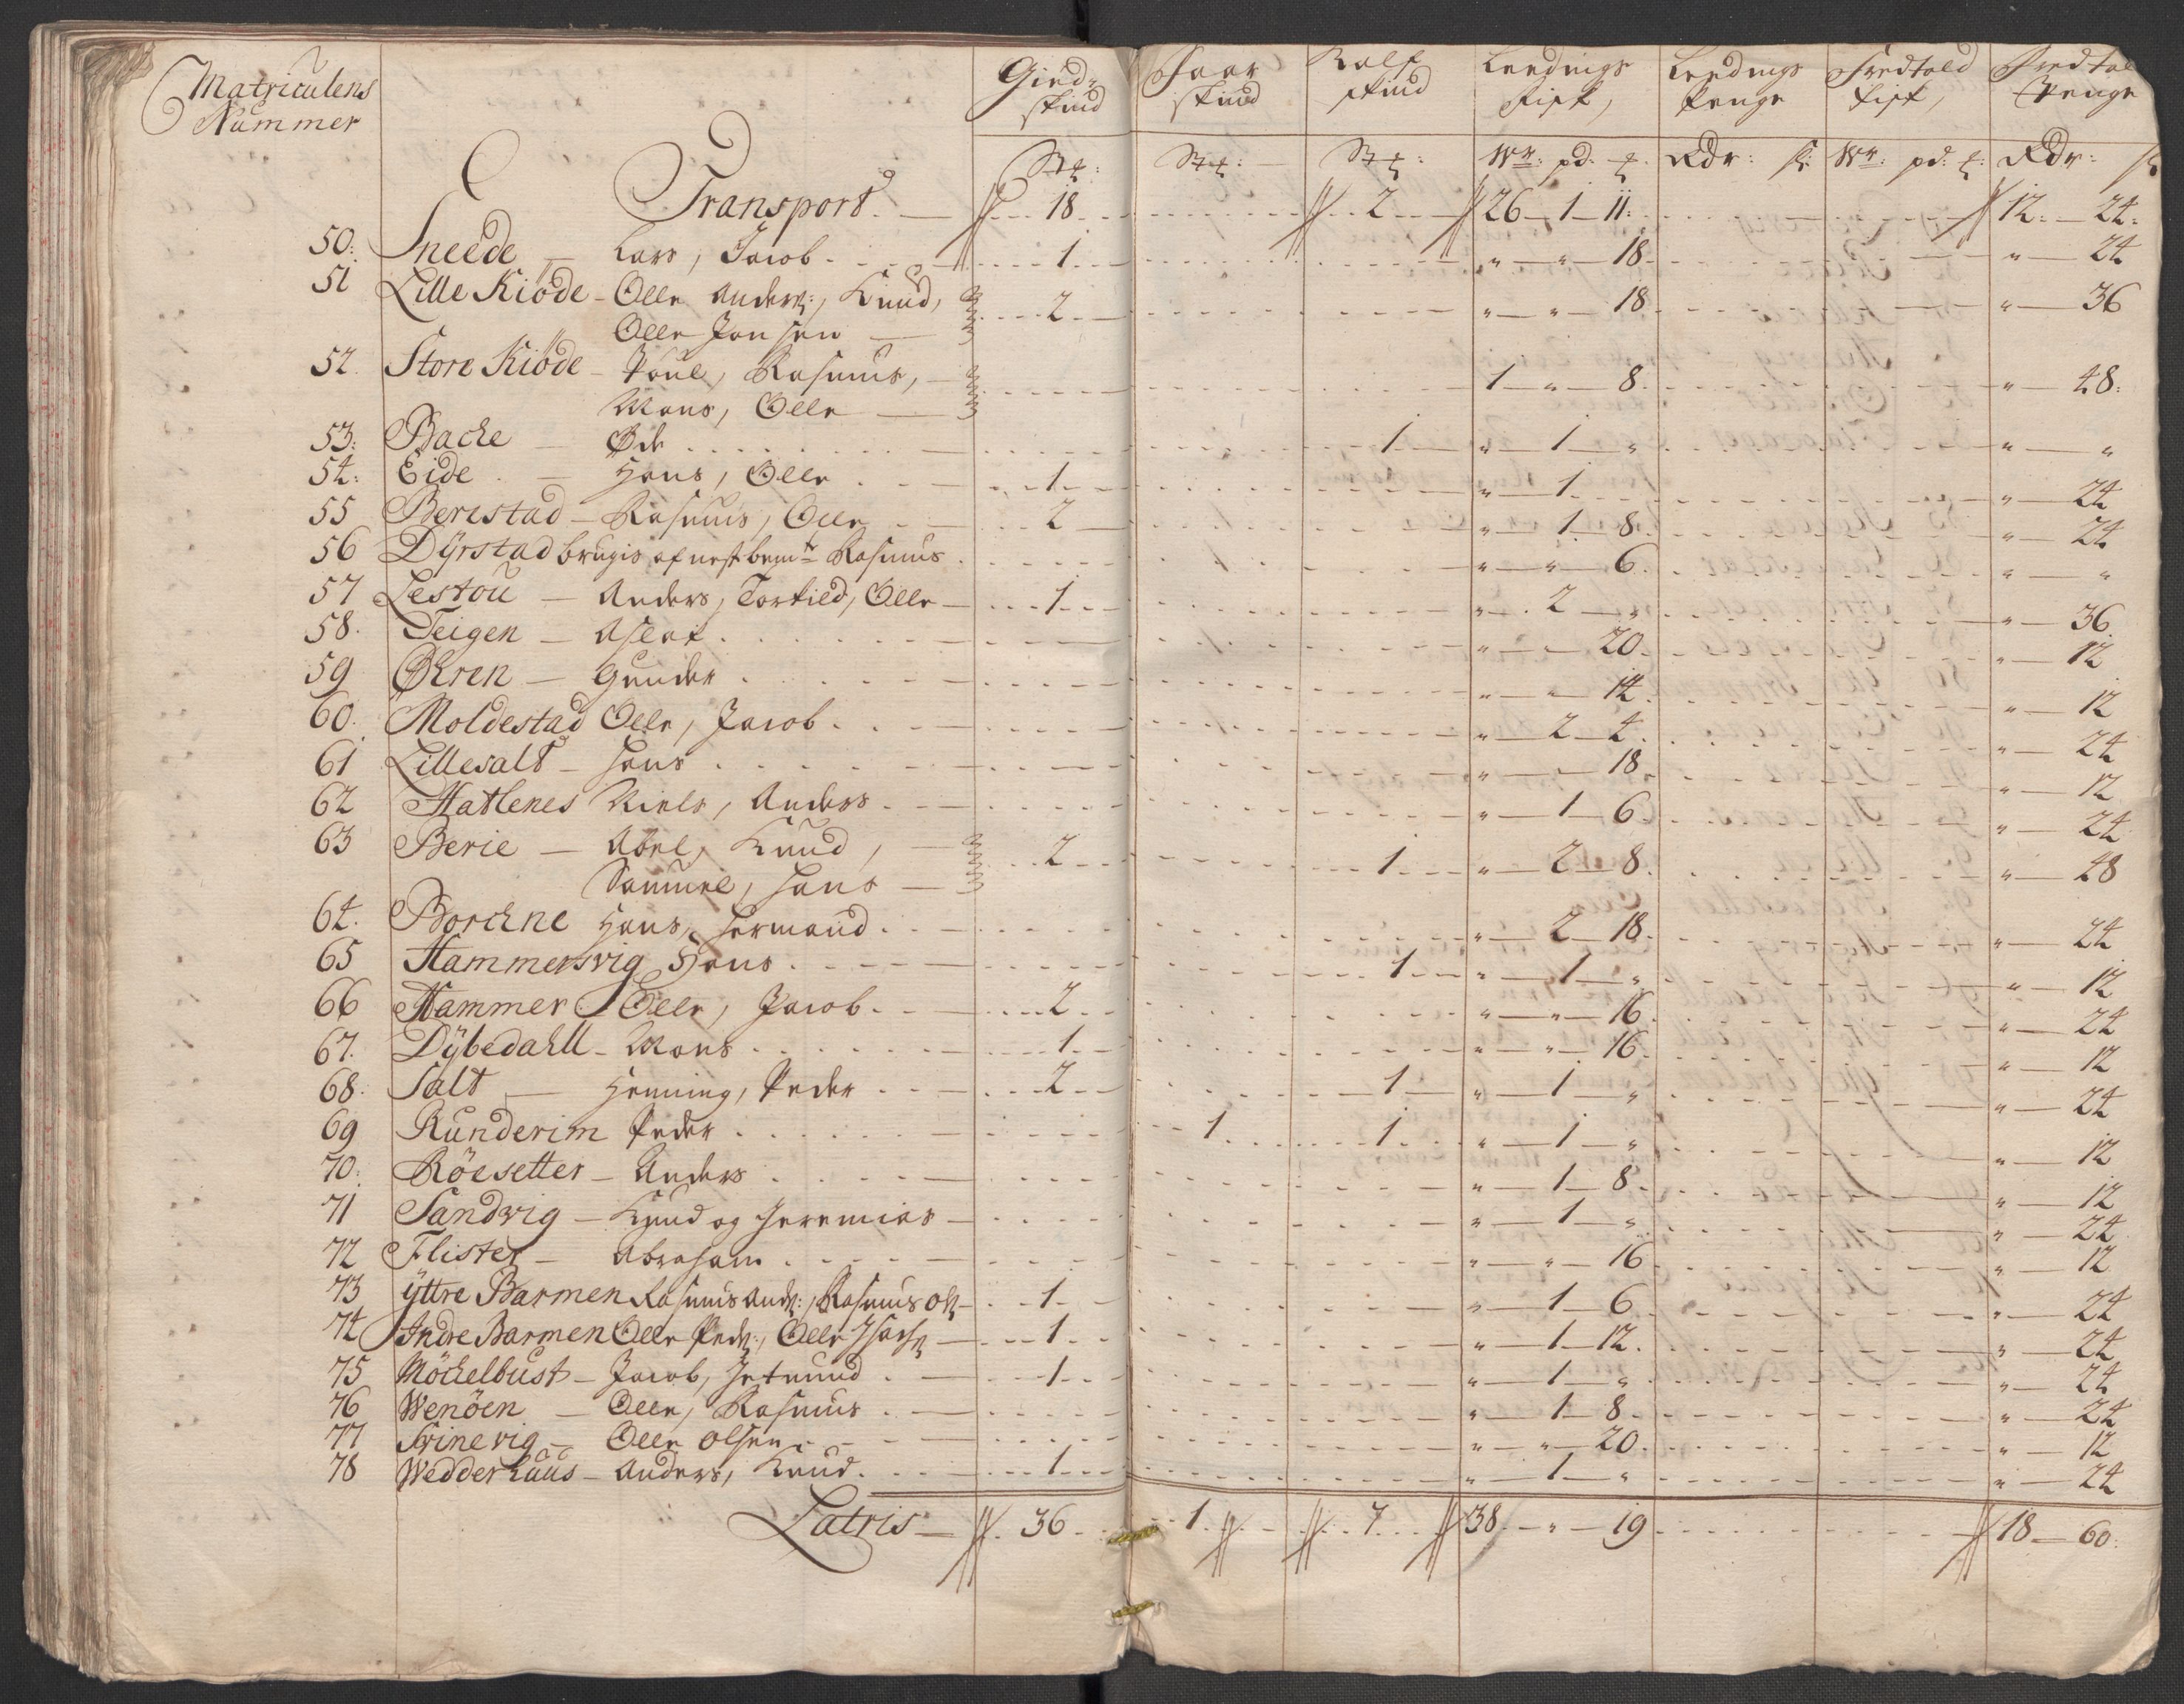 Matriculens Nummer | Giedskind | Faar skind | Kalf skind | Leedings fisk, | Leedings Penge | Fredtold fisk, | Fredtol Penge
St: | St: | St: | Wr: pd: | Rdr: s: | Wr: pd: | Rdr: s
Transport. 18. 2 26 1 11: 12: 24:
50: Sneede Lars, Jacob. 1 " " 18 " 24
51 Lille Kiöde Olle Anders:, Knud, 2 " " 18 " 36
Olle Jonsen
52. Store Kiöde Poul, Rasmus, 1 " 8. " 48:
Mons, Olle
53: Bache Øde 1 " 1 " " "
54: Eide Hans, Olle 1 " 1 " 24
55 Berestad Rasmus, Olle 2 " 1 8. " 24
56 Dÿrstad brugis af nest bemte Rasmus " " 6. " "
57 Lestou Anders, Torkild, Olle 1 " 2 " " 36
58. Teigen Aslak " " 20. " 12
59 Øhren Gunder " " 14. " 12
60. Moldestad Olle, Jacob. " 2 4. " 24
61 Lillesalt Hans " " 18. " 12
62 Hatlenes Niels, Anders " 1 6. " 24
63 Berie Abel, Knud, 2 1 " 2 8. " 48
Samuel, Hans
64. Borchne Hans, Hermand. " 2 18. " 24
65 Hammersvig Hans. 1 " 1 " " 12
66 Hammer Olle, Jacob. 2 " " 16. " 24
67. Dÿbedahll Mons 1 " " 16. " 12
68. Salt Henning, Peder 2 1 " 1 " " 24
69 Runderim Peder 1 1 " 1 " " 12
70: Röesetter Anders " 1 8. " 12
71 Sandvig Knud og Jeremias " 1 " " 24
72 Flister Abraham " " 16 " 12
73 ÿttre Barmen Rasmus And:, Rasmus Ol: 1 " 1 6 " 24
74 Indre Barmen Olle Ped:, Olle Isachs: 1 " 1 12. " 24
75 Möchelbust Jacob, Jetmund 1 " 1 " " 24
76 Wenöen Olle, Rasmus " 1 8. " 24
77 Svinevig Olle Olsen " " 20. " 12
78 Wedderhuus Anders, Knud. 1 " 1 " " 24
Latris 36 1 7 38 " 19 18 60: